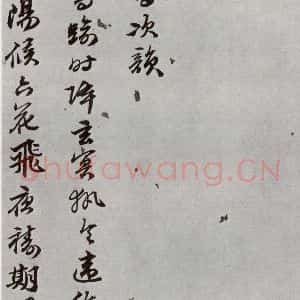 次韻
踰時降玄冥執令違
陽候六花飛夜禱期
shufawang.CN